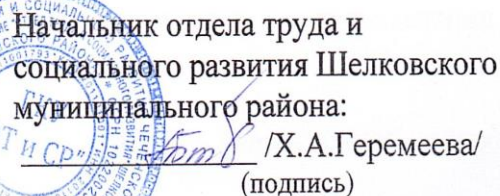 Начальник отдела труда и
социального развития Шелковского
муниципального района:
/Х.А.Геремеева/
(подпись)